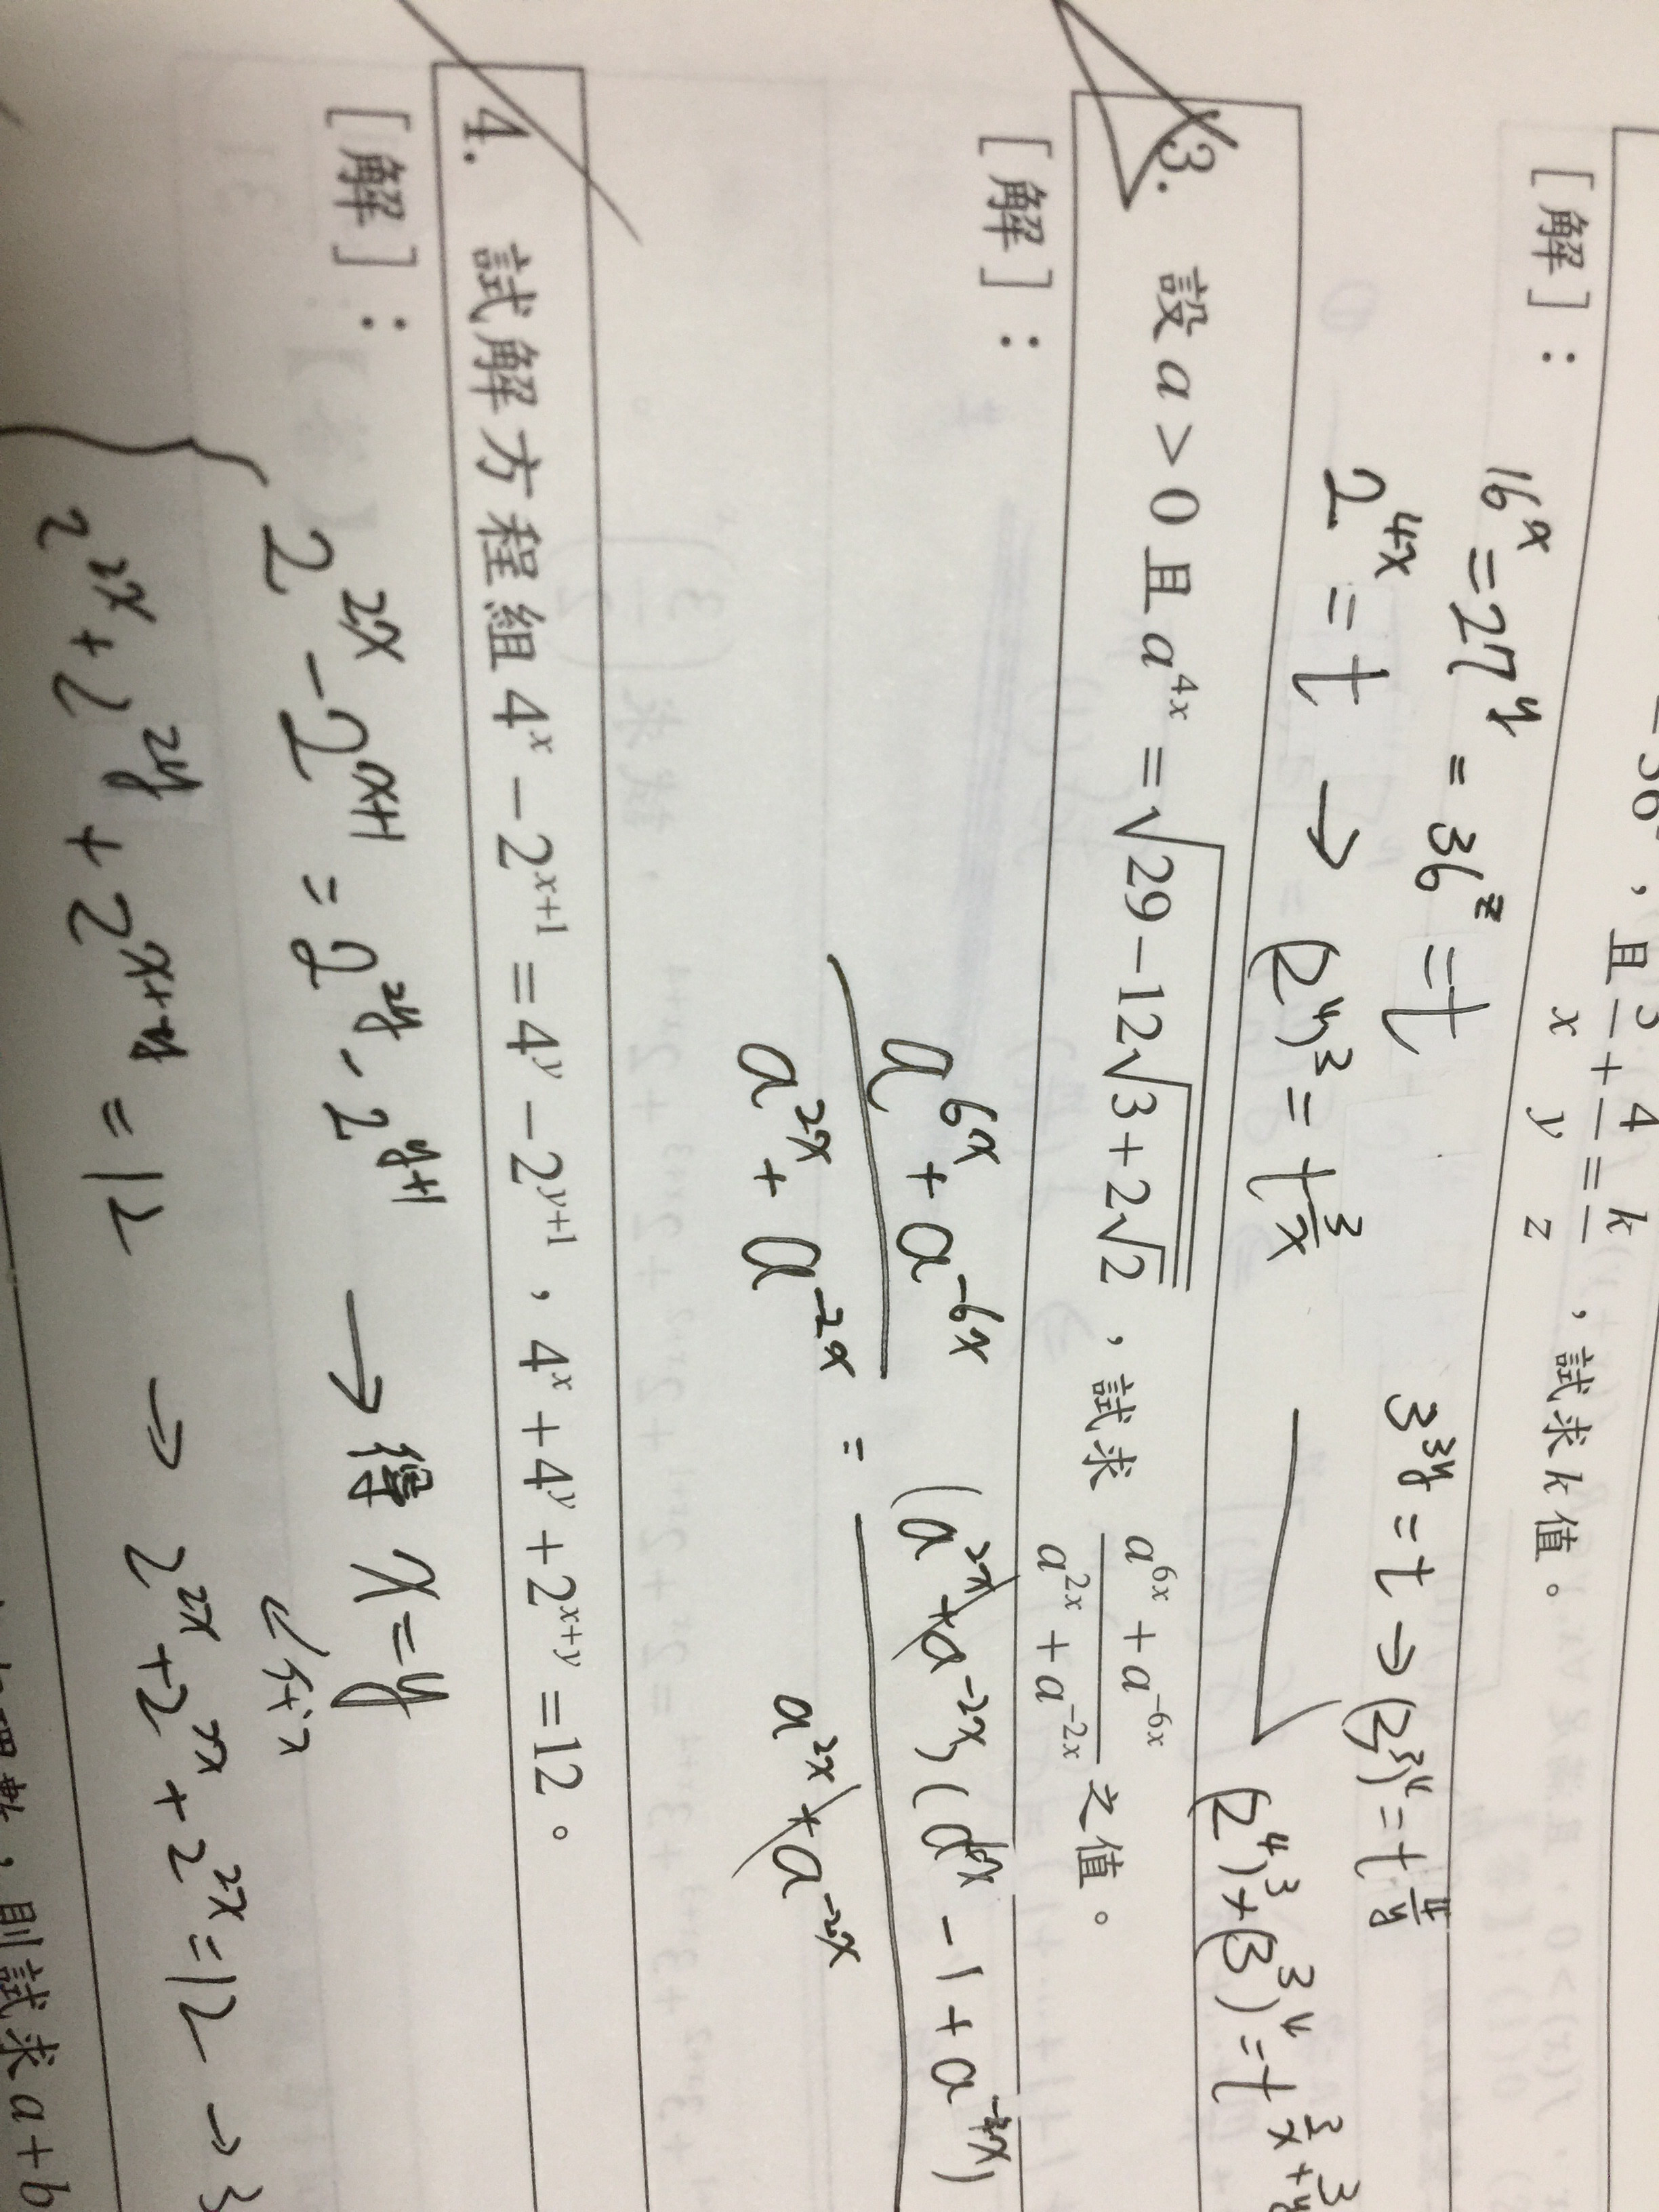 36，且 3/x + 4/y = k/z，試求 k 值。
[解]：
16^x = 27^y = 36^z = t
3^{3y} = t → (3^3)^4 = t^{4/y}
2^{4x} = t → (2^4)^3 = t^{3/x}
(2^4)^3 × (3^3)^4 = t^{3/x +
3. 設 a > 0 且 a^{4x} = √(29 − 12√(3 + 2√2))，試求 (a^{6x} + a^{-6x})/(a^{2x} + a^{-2x}) 之值。
[解]：
(a^{6x} + a^{-6x})/(a^{2x} + a^{-2x}) = (a^{2x} + a^{-2x})(a^{4x} − 1 + a^{-4x})/(a^{2x} + a^{-2x})
4. 試解方程組 4^x − 2^{x+1} = 4^y − 2^{y+1}，4^x + 4^y + 2^{x+y} = 12。
[解]：
2^{2x} − 2^{x+1} = 2^{2y} − 2^{y+1} → 得 x = y
2^{2x} + 2^{2y} + 2^{x+y} = 12 → 2^{2x} + 2^{2x} + 2^{2x} = 12 → 3
，則試求 a + b